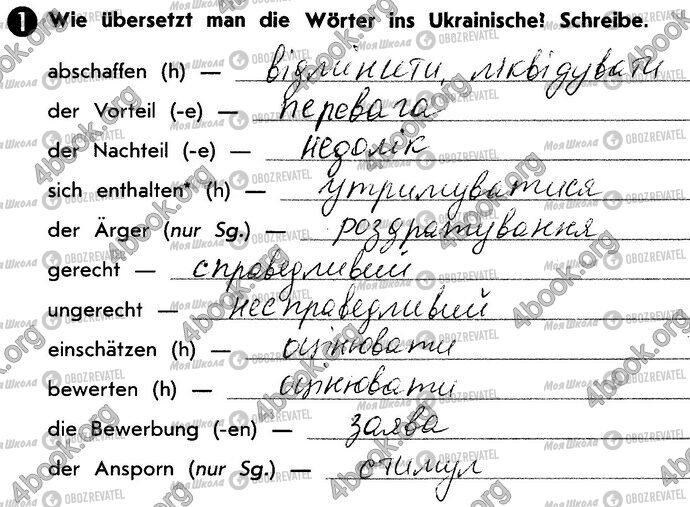 1 Wie übersetzt man die Wörter ins Ukrainische? Schreibe.
abschaffen (h) — відмінити, ліквідувати
der Vorteil (-e) — перевага
der Nachteil (-e) — недолік
sich enthalten* (h) — утримуватися
der Ärger (nur Sg.) — роздратування
gerecht — справедливий
ungerecht — несправедливий
einschätzen (h) — оцінювати
bewerten (h) — оцінювати
die Bewerbung (-en) — заява
der Ansporn (nur Sg.) — стимул